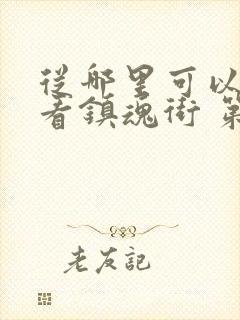 從哪里可以
看鎮魂街 第
老友記